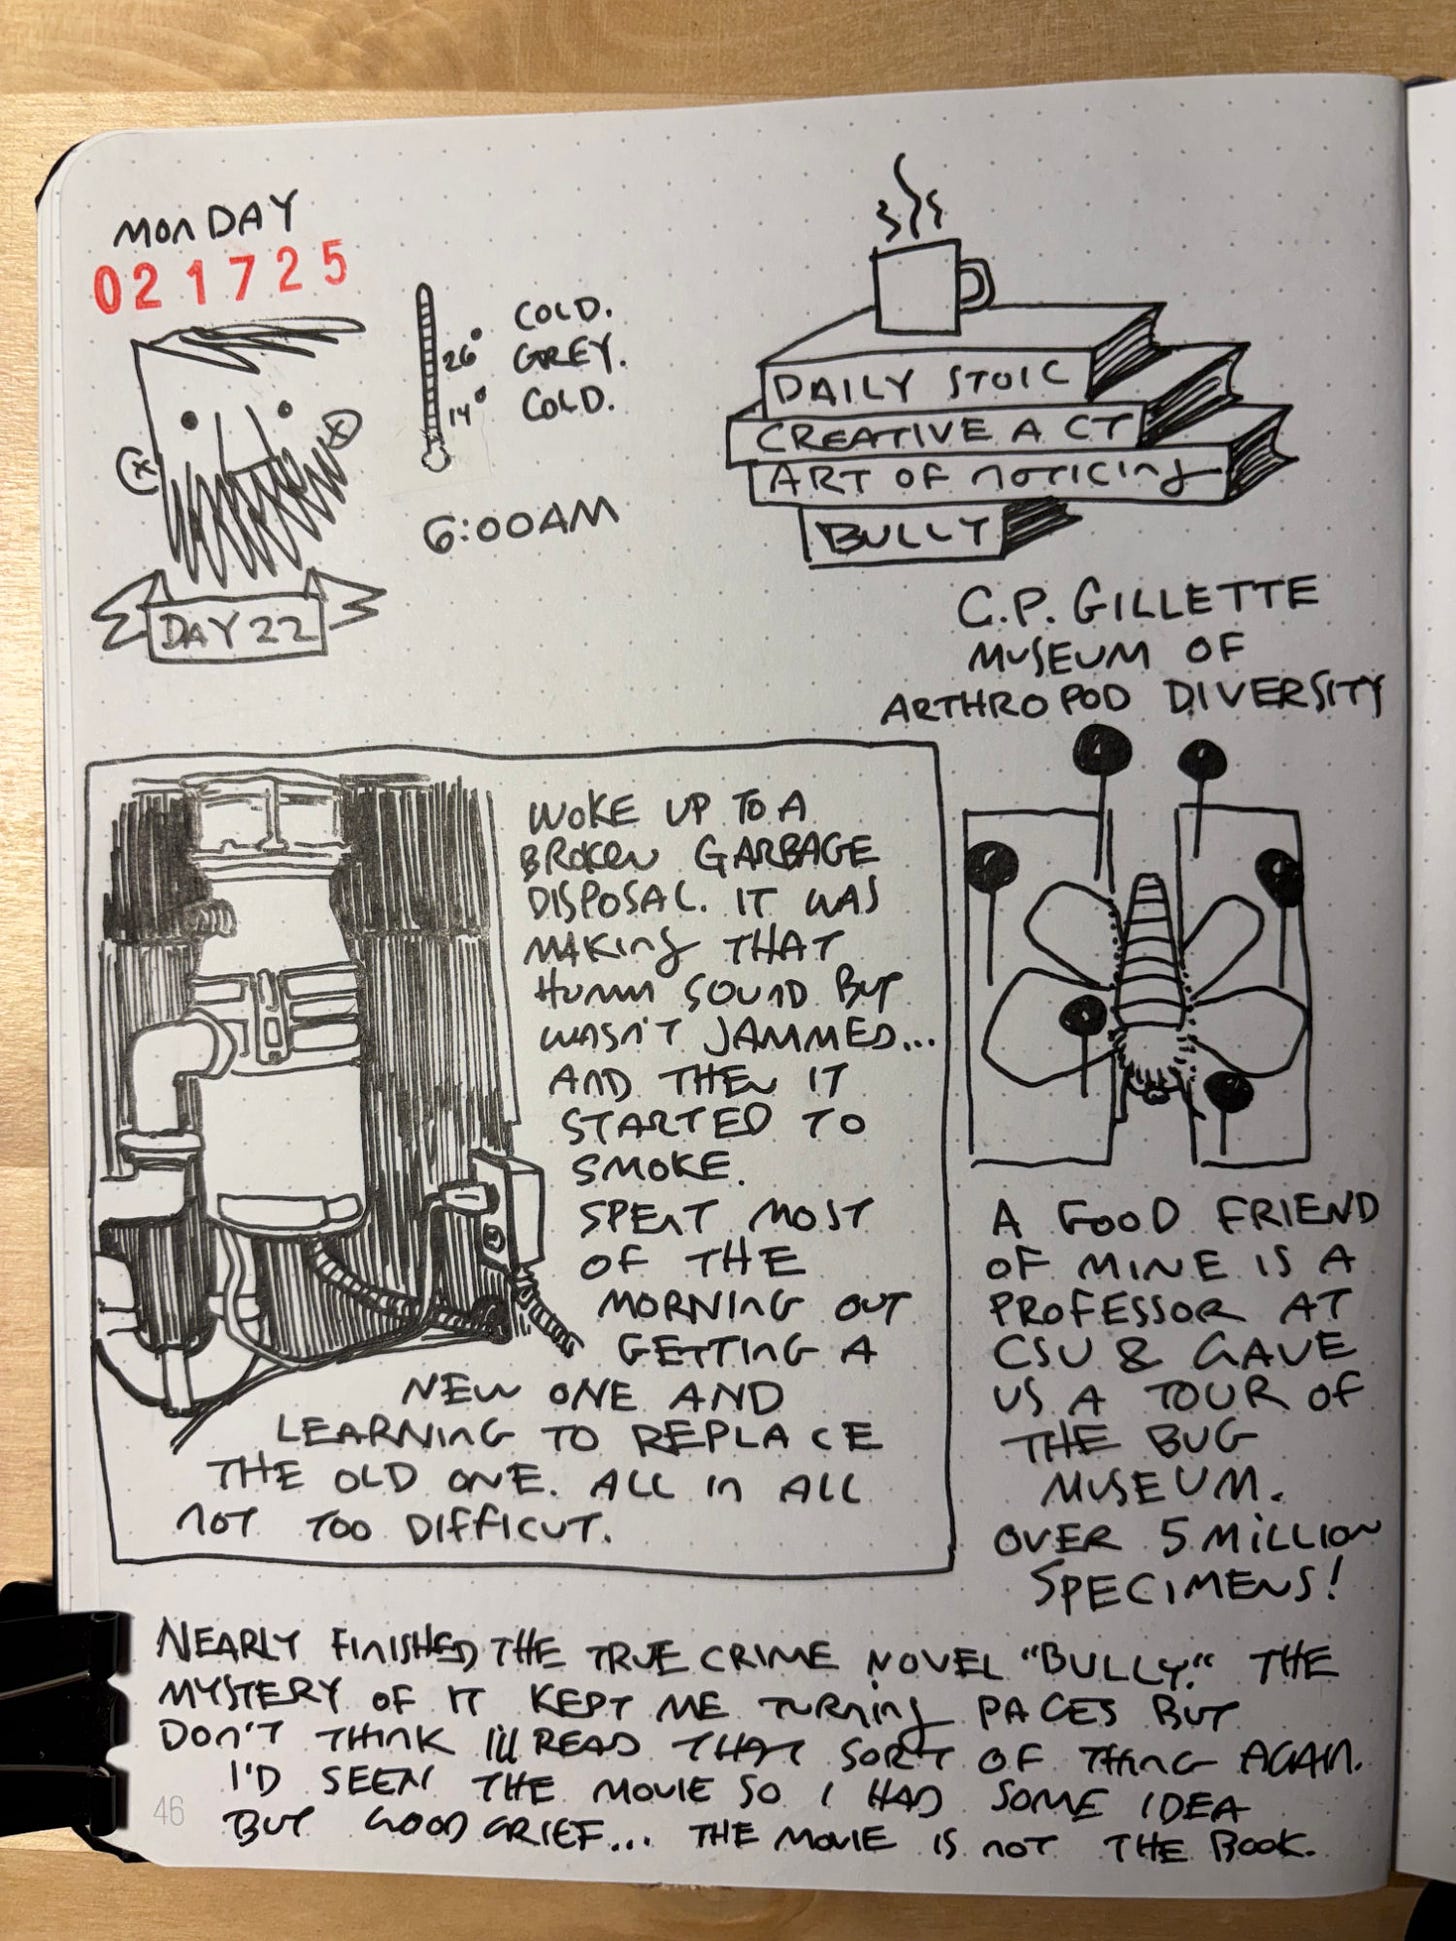 MONDAY
021725
26°
14°
COLD.
GREY.
COLD.
6:00AM
DAY 22
DAILY STOIC
CREATIVE ACT
ART OF NOTICING
BULLY
C.P. GILLETTE
MUSEUM OF
ARTHROPOD DIVERSITY
WOKE UP TO A
BROKEN GARBAGE
DISPOSAL. IT WAS
MAKING THAT
HUMM SOUND BUT
WASN'T JAMMED...
AND THEN IT
STARTED TO
SMOKE.
SPENT MOST
OF THE
MORNING OUT
GETTING A
NEW ONE AND
LEARNING TO REPLACE
THE OLD ONE. ALL IN ALL
NOT TOO DIFFICUT.
A GOOD FRIEND
OF MINE IS A
PROFESSOR AT
CSU & GAVE
US A TOUR OF
THE BUG
MUSEUM.
OVER 5 MILLION
SPECIMENS!
NEARLY FINISHED THE TRUE CRIME NOVEL "BULLY." THE
MYSTERY OF IT KEPT ME TURNING PAGES BUT
DON'T THINK I'll READ THAT SORT OF THING AGAIN.
I'D SEEN THE MOVIE SO I HAD SOME IDEA
BUT GOOD GRIEF... THE MOVIE IS NOT THE BOOK.
46